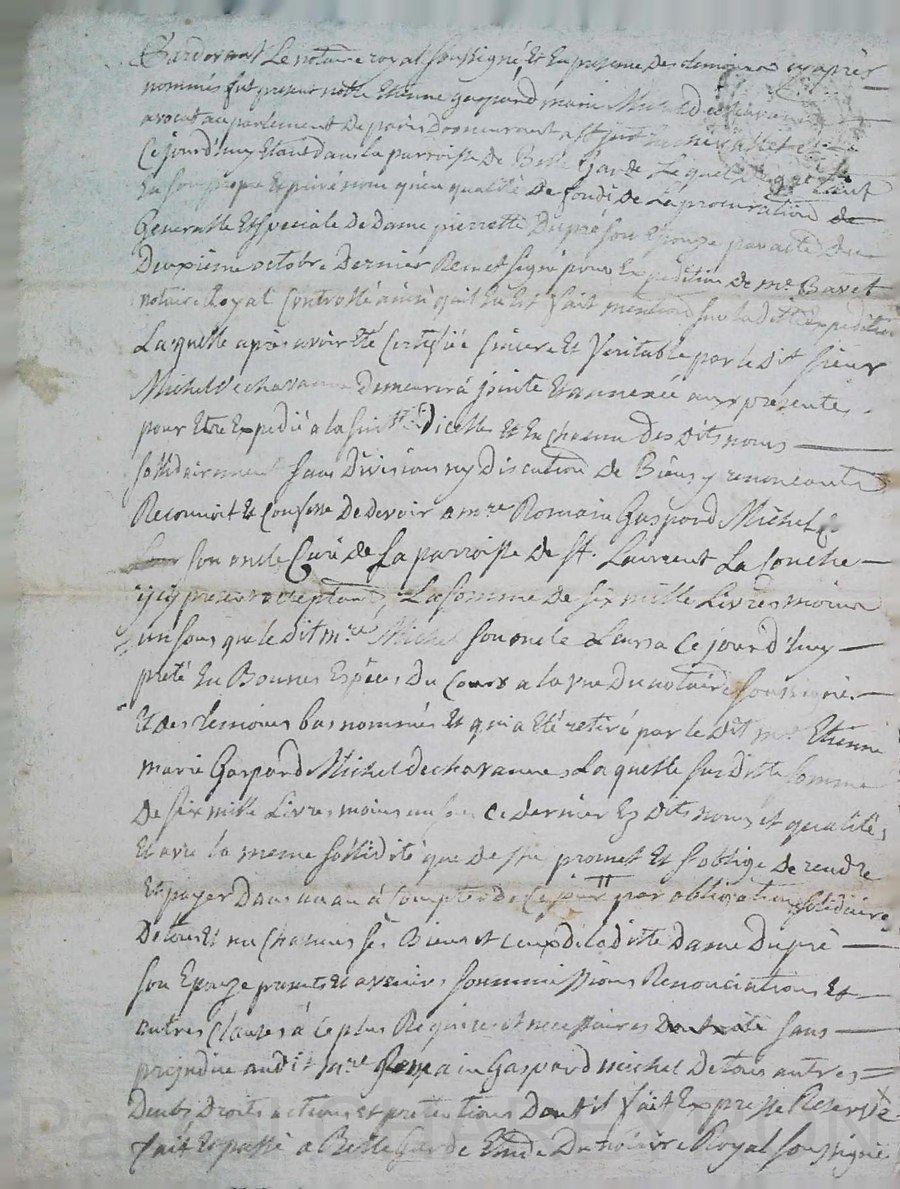 Pardevant Le notaire royal soussigné, Et En presence Des temoins cy après
nommés fut present Etienne gaspard marie Michel dechavanne
avocat au parlement De paris Demeurant
Ce jourd'huy Etant dans la parroisse de Belle Garde Lequel tant
En son propre Et privé nom qu'en qualité De fondé de La procuration de
Generalle Et speciale de Dame pierrette Dupré son Epouze par acte du
Deuxième octobre Dernier Remet signé pour Expedition De me. Bavet
notaire Royal Controllé ainsi qu'il En Est fait mention sur la ditte Expedition
Laquelle après avoir Eté Certifiée sincere Et Veritable par le Dit sieur
Michel dechavanne demeurera jointe Et annexée aux presentes
pour Etre Expedié a la suitte D'icelles Et En chacun Des Dits noms
sollidairement sans Division ny Discution de Biens y renoncant
Reconnoit Et Confesse De devoir a mre Romain Gaspard Michel
son oncle Curé de La parroisse de St. Laurent La Conche
icy present acceptant, La somme De six mille Livres moins
un sous que le dit mre Michel son oncle Luy a Ce jourd'huy
preté En Bonnes Espèces Du Cours a la vue Du notaire soussigné
Et des temoins bas nommés Et qui a Eté retiré par le Dit mre Etienne
marie Gaspard Michel dechavanne, Laquelle susditte somme
De six mille Livres moins un sou ce dernier Es Dits noms et qualités
Et avec la meme sollidité que De sus promet Et s'oblige De rendre
Et payer Dans un an à Compter de Ce jour par obligation solidaire
De tous Et un Chacuns ses Biens et Ceux de la ditte Dame Dupré
son Epouze presents Et avenir, soummissions Renonciations Et
autres Clauses à ce plus Requises et necessaires sans
prejudice audit mre Romain Gaspard michel De tous autres
Deubs Droits actions et pretentions Dont il fait Expresse Reserve
fait Et passé a Belle garde Etude Du notaire Royal soussigné